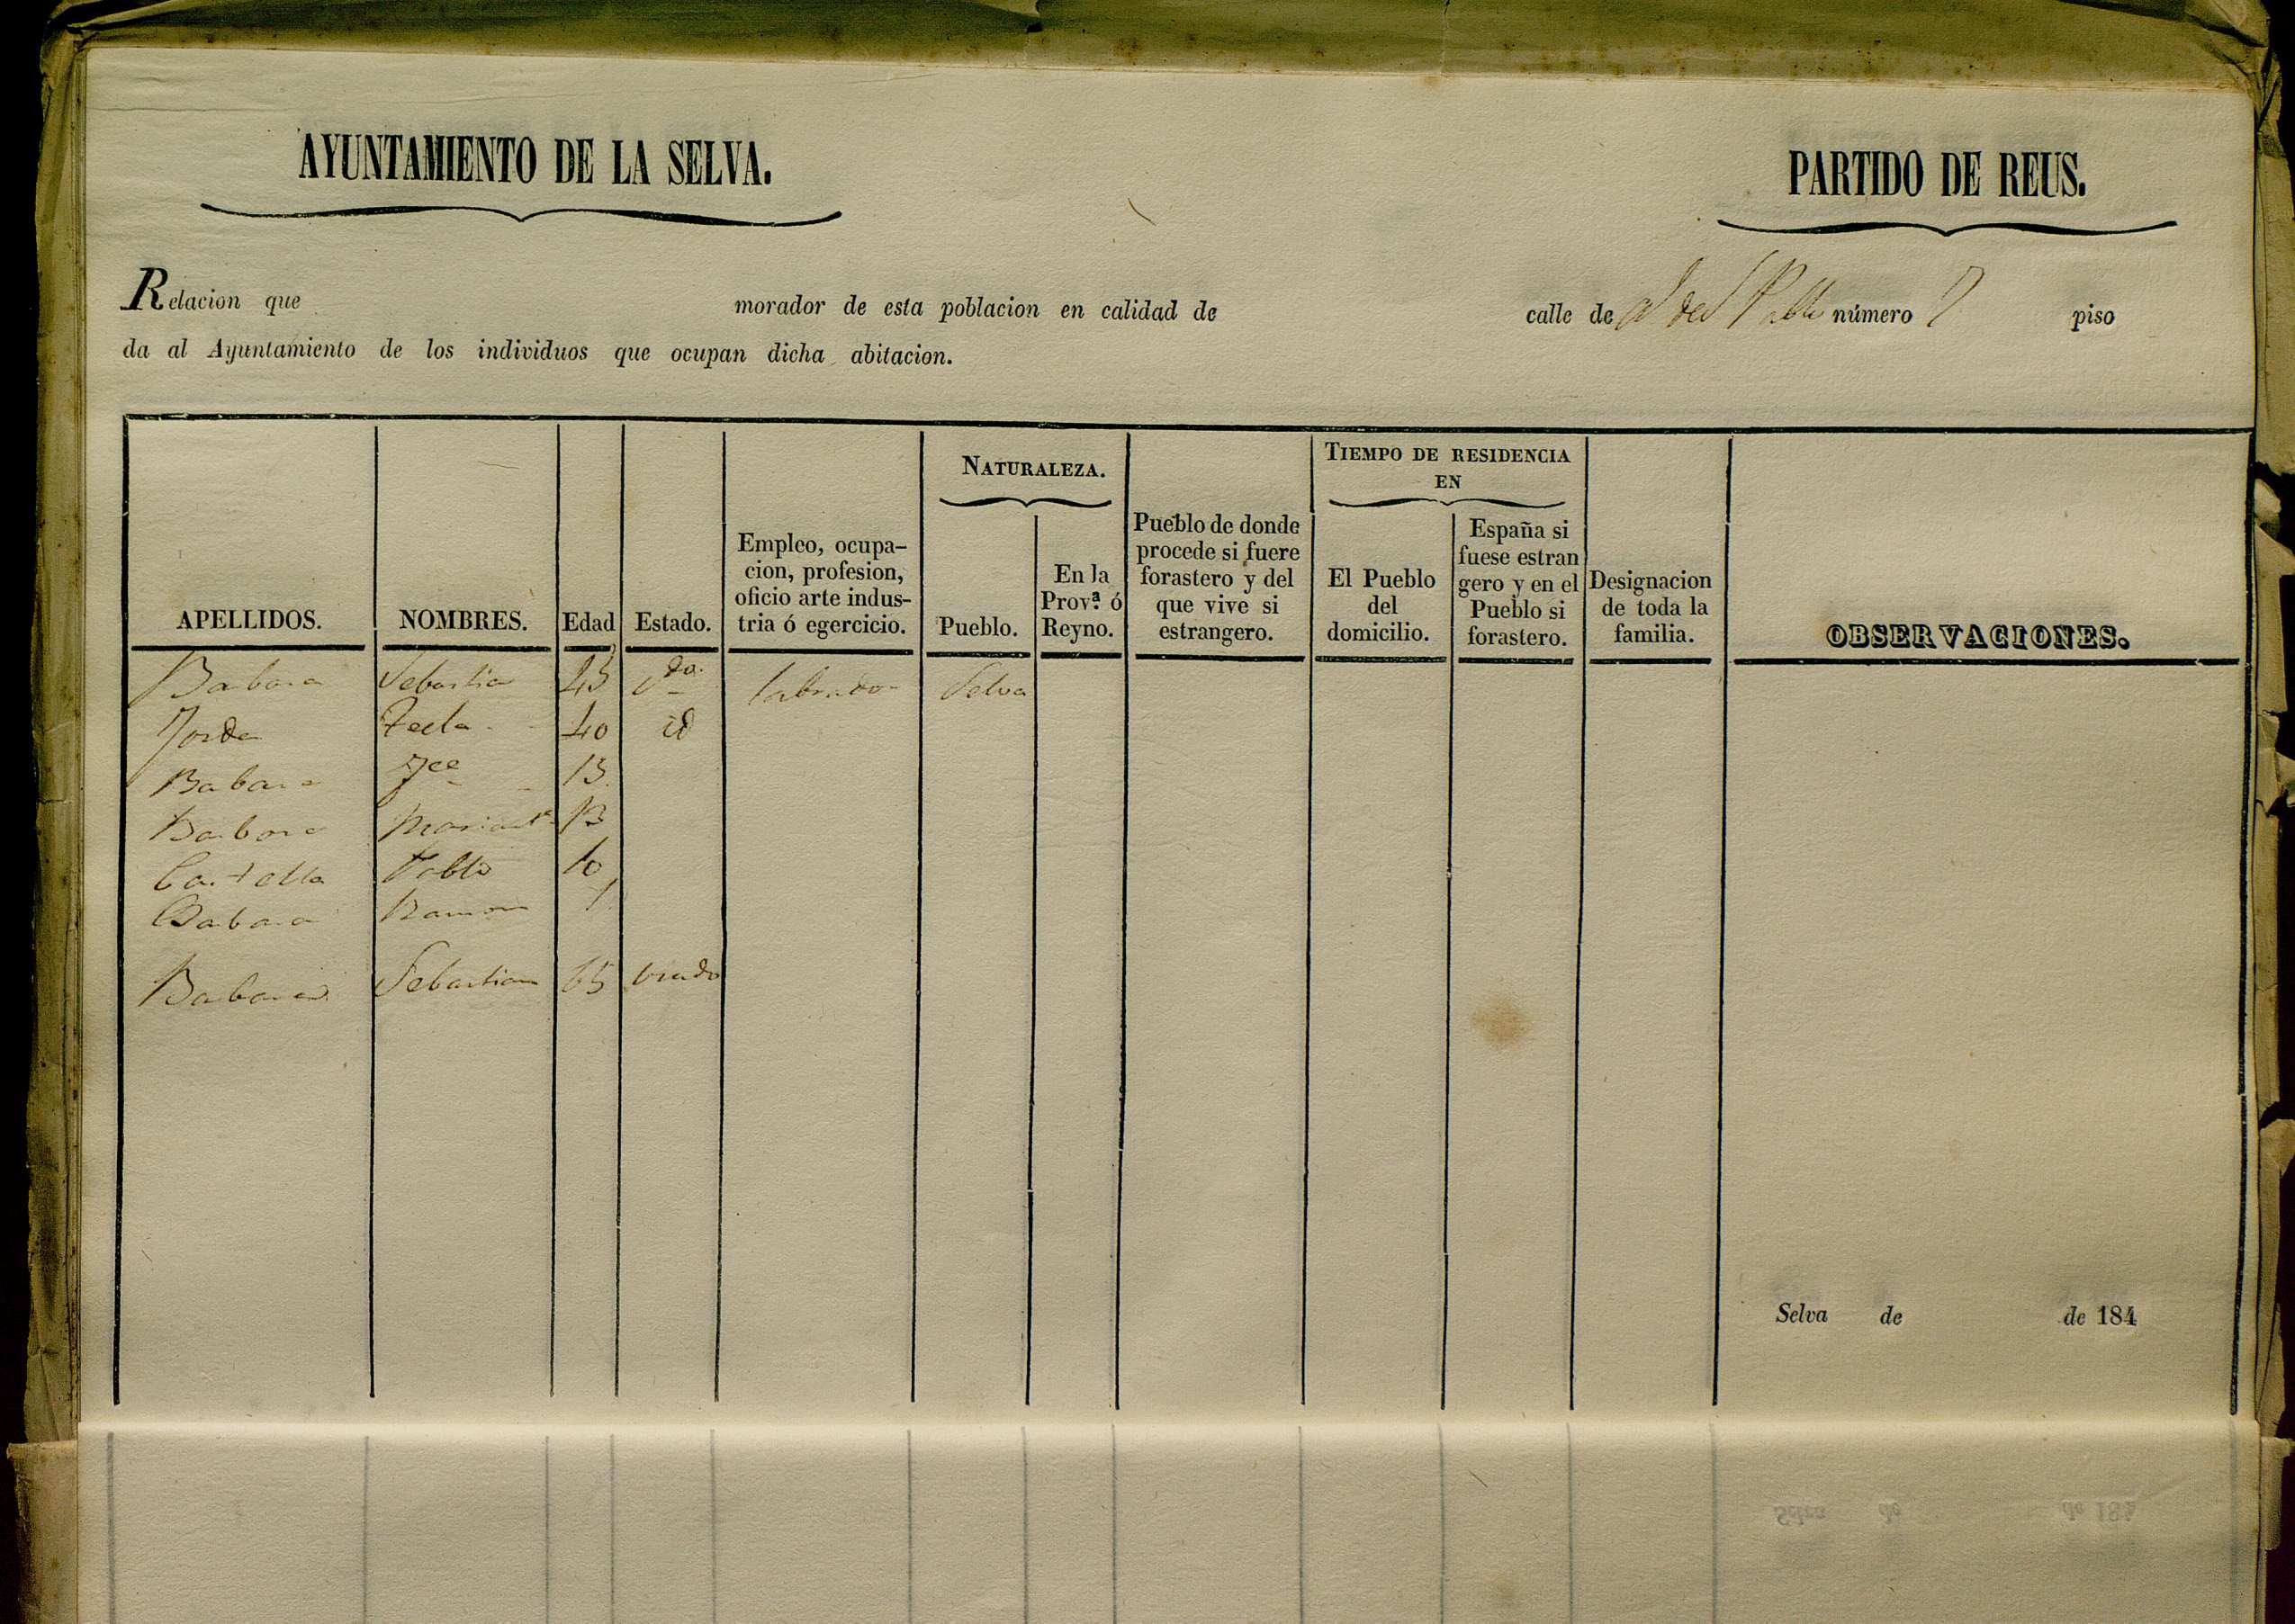 AYUNTAMIENTO DE LA SELVA.
PARTIDO DE REUS.
Relacion que morador de esta poblacion en calidad de calle de número 7 piso
da al Ayuntamiento de los individuos que ocupan dicha abitacion.
NATURALEZA.
TIEMPO DE RESIDENCIA
EN
APELLIDOS.
NOMBRES.
Edad
Estado.
Empleo, ocupa-
cion, profesion,
oficio arte indus-
tria ó egercicio.
Pueblo.
En la
Prov.ª ó
Reyno.
Pueblo de donde
procede si fuere
forastero y del
que vive si
estrangero.
El Pueblo
del
domicilio.
España si
fuese estran
gero y en el
Pueblo si
forastero.
Designacion
de toda la
familia.
OBSERVACIONES.
Barbara Sebastian 43 labrador Selva
Jorda Tecla 40 id
Barbara 15
Barbara 13
Pablo 10
Barbara Ramon
Barbara Sebastian 65 viudo
Selva de de 184